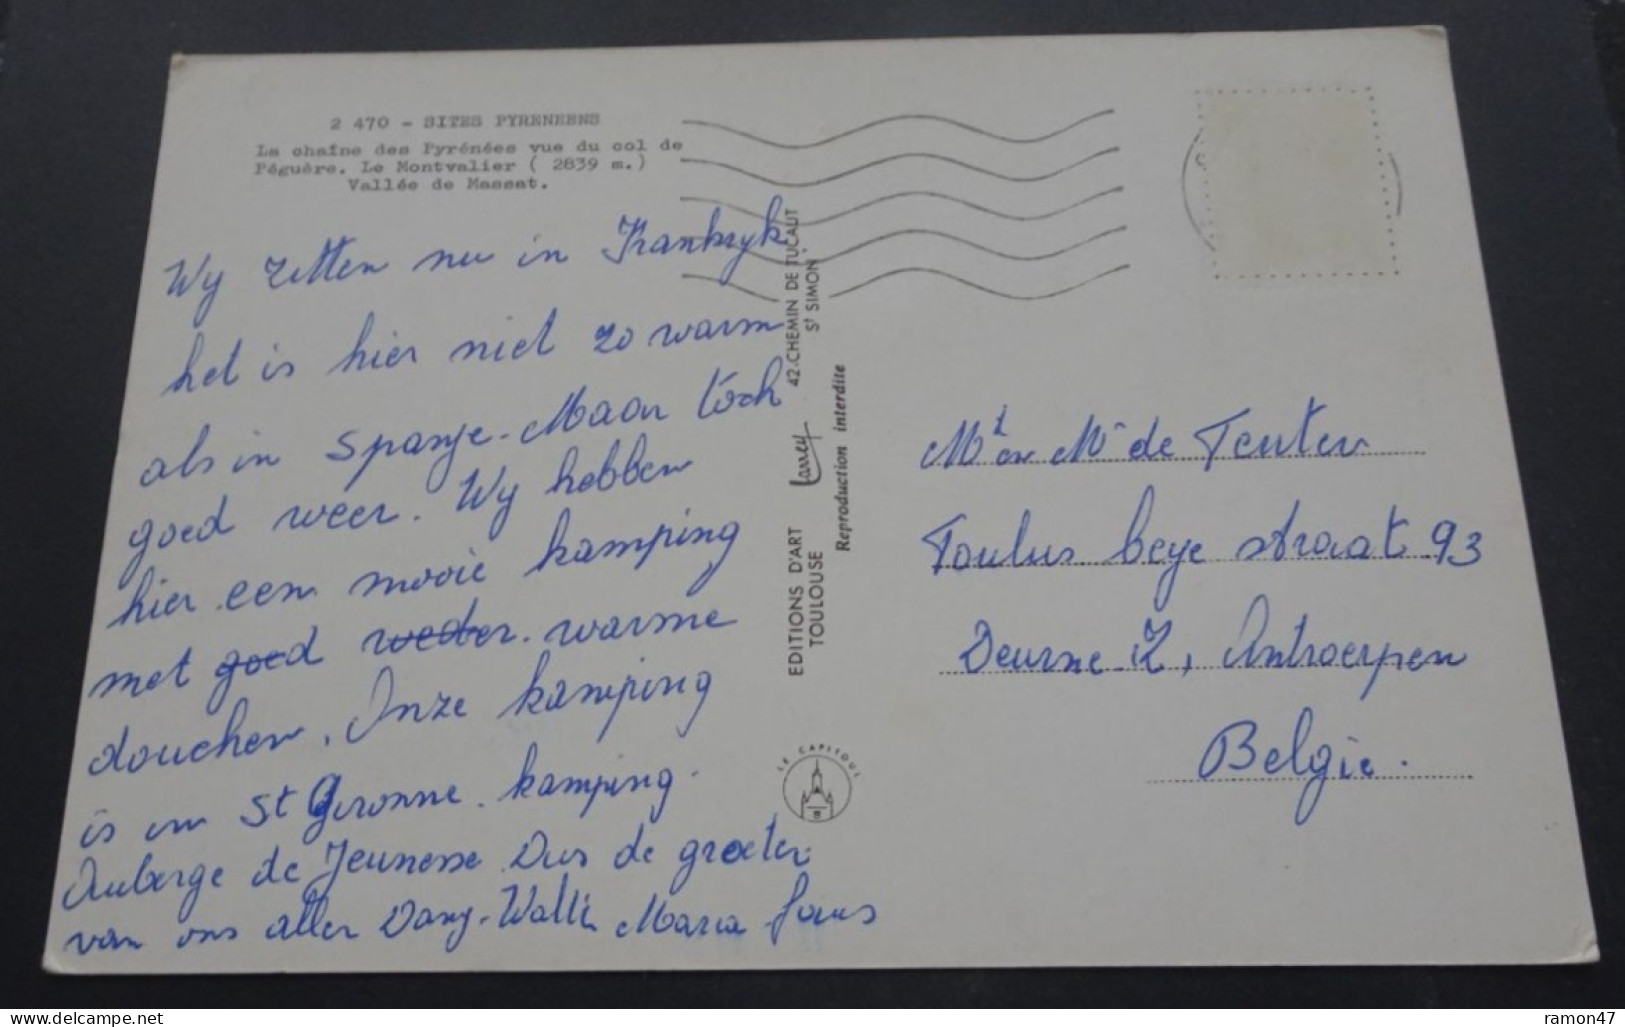 2 470 - SITES PYRENEENS
La chaîne des Pyrénées vue du col de
Péguère. Le Montvalier ( 2839 m.)
Vallée de Massat.
Wy zitten nu in Frankryk
het is hier niet zo warm
als in Spanje. Maar toch
goed weer. Wy hebben
hier een mooie kamping
met goed weder. warme
douchen. Onze kamping
is in St Gironne. kamping.
Auberge de Jeunesse Dus de groeten
van ons allen Dany-Walli Maria fons
EDITIONS D'ART Larrey 42.CHEMIN DE TUCAUT
TOULOUSE St SIMON
Reproduction interdite
LE CAPITOUL
Mt en Mr de
straat 93
Deurne Z, Antwerpen
Belgie.
ramon47